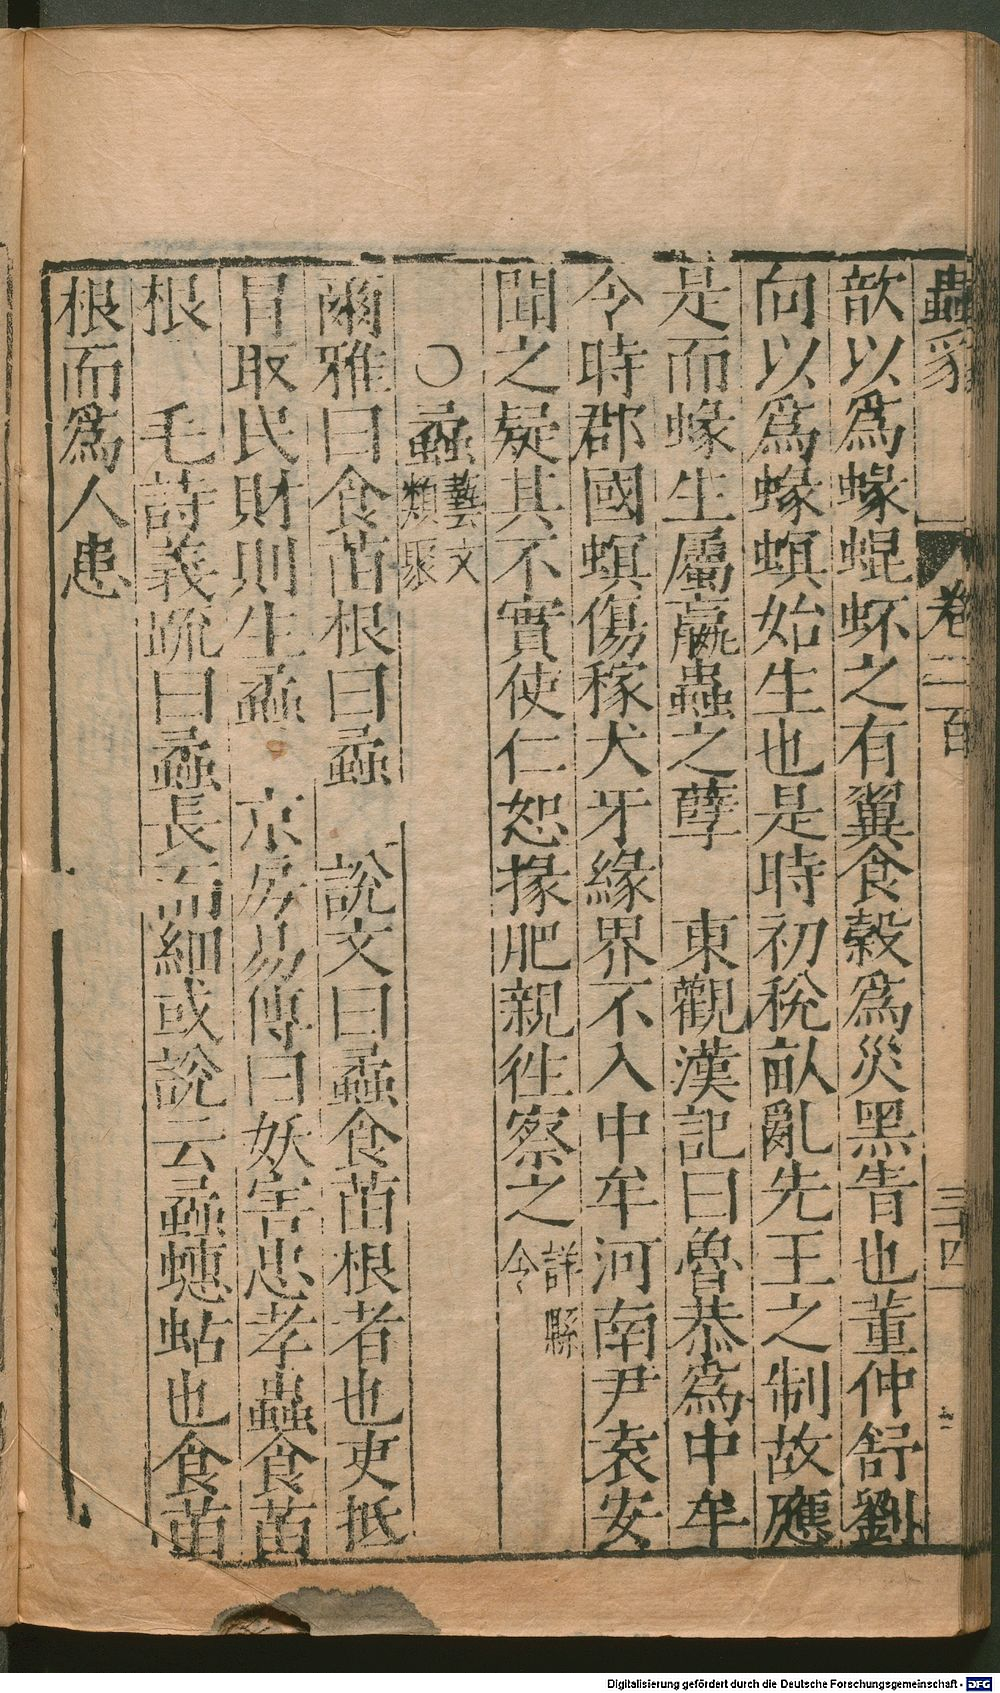 蟲豸 卷二百 三十四
歆以爲蝝蜫蚍之有翼食穀爲災黑眚也董仲舒劉
向以爲蝝螟始生也是時初稅畝亂先王之制故應
是而蝝生屬蠃蟲之孽 東觀漢記曰魯恭爲中牟
令時郡國螟傷稼犬牙緣界不入中牟河南尹袁安
聞之疑其不實使仁恕掾肥親徃察之詳縣令
〇蟊藝文類聚
爾雅曰食苗根曰蟊 說文曰蟊食苗根者也吏抵
冒取民財則生蟊 京房易傳曰妖害忠孝蟲食苗
根 毛詩義疏曰蟊長而細或說云蟊蟪蛄也食苗
根而爲人患
Digitalisierung gefördert durch die Deutsche Forschungsgemeinschaft - DFG